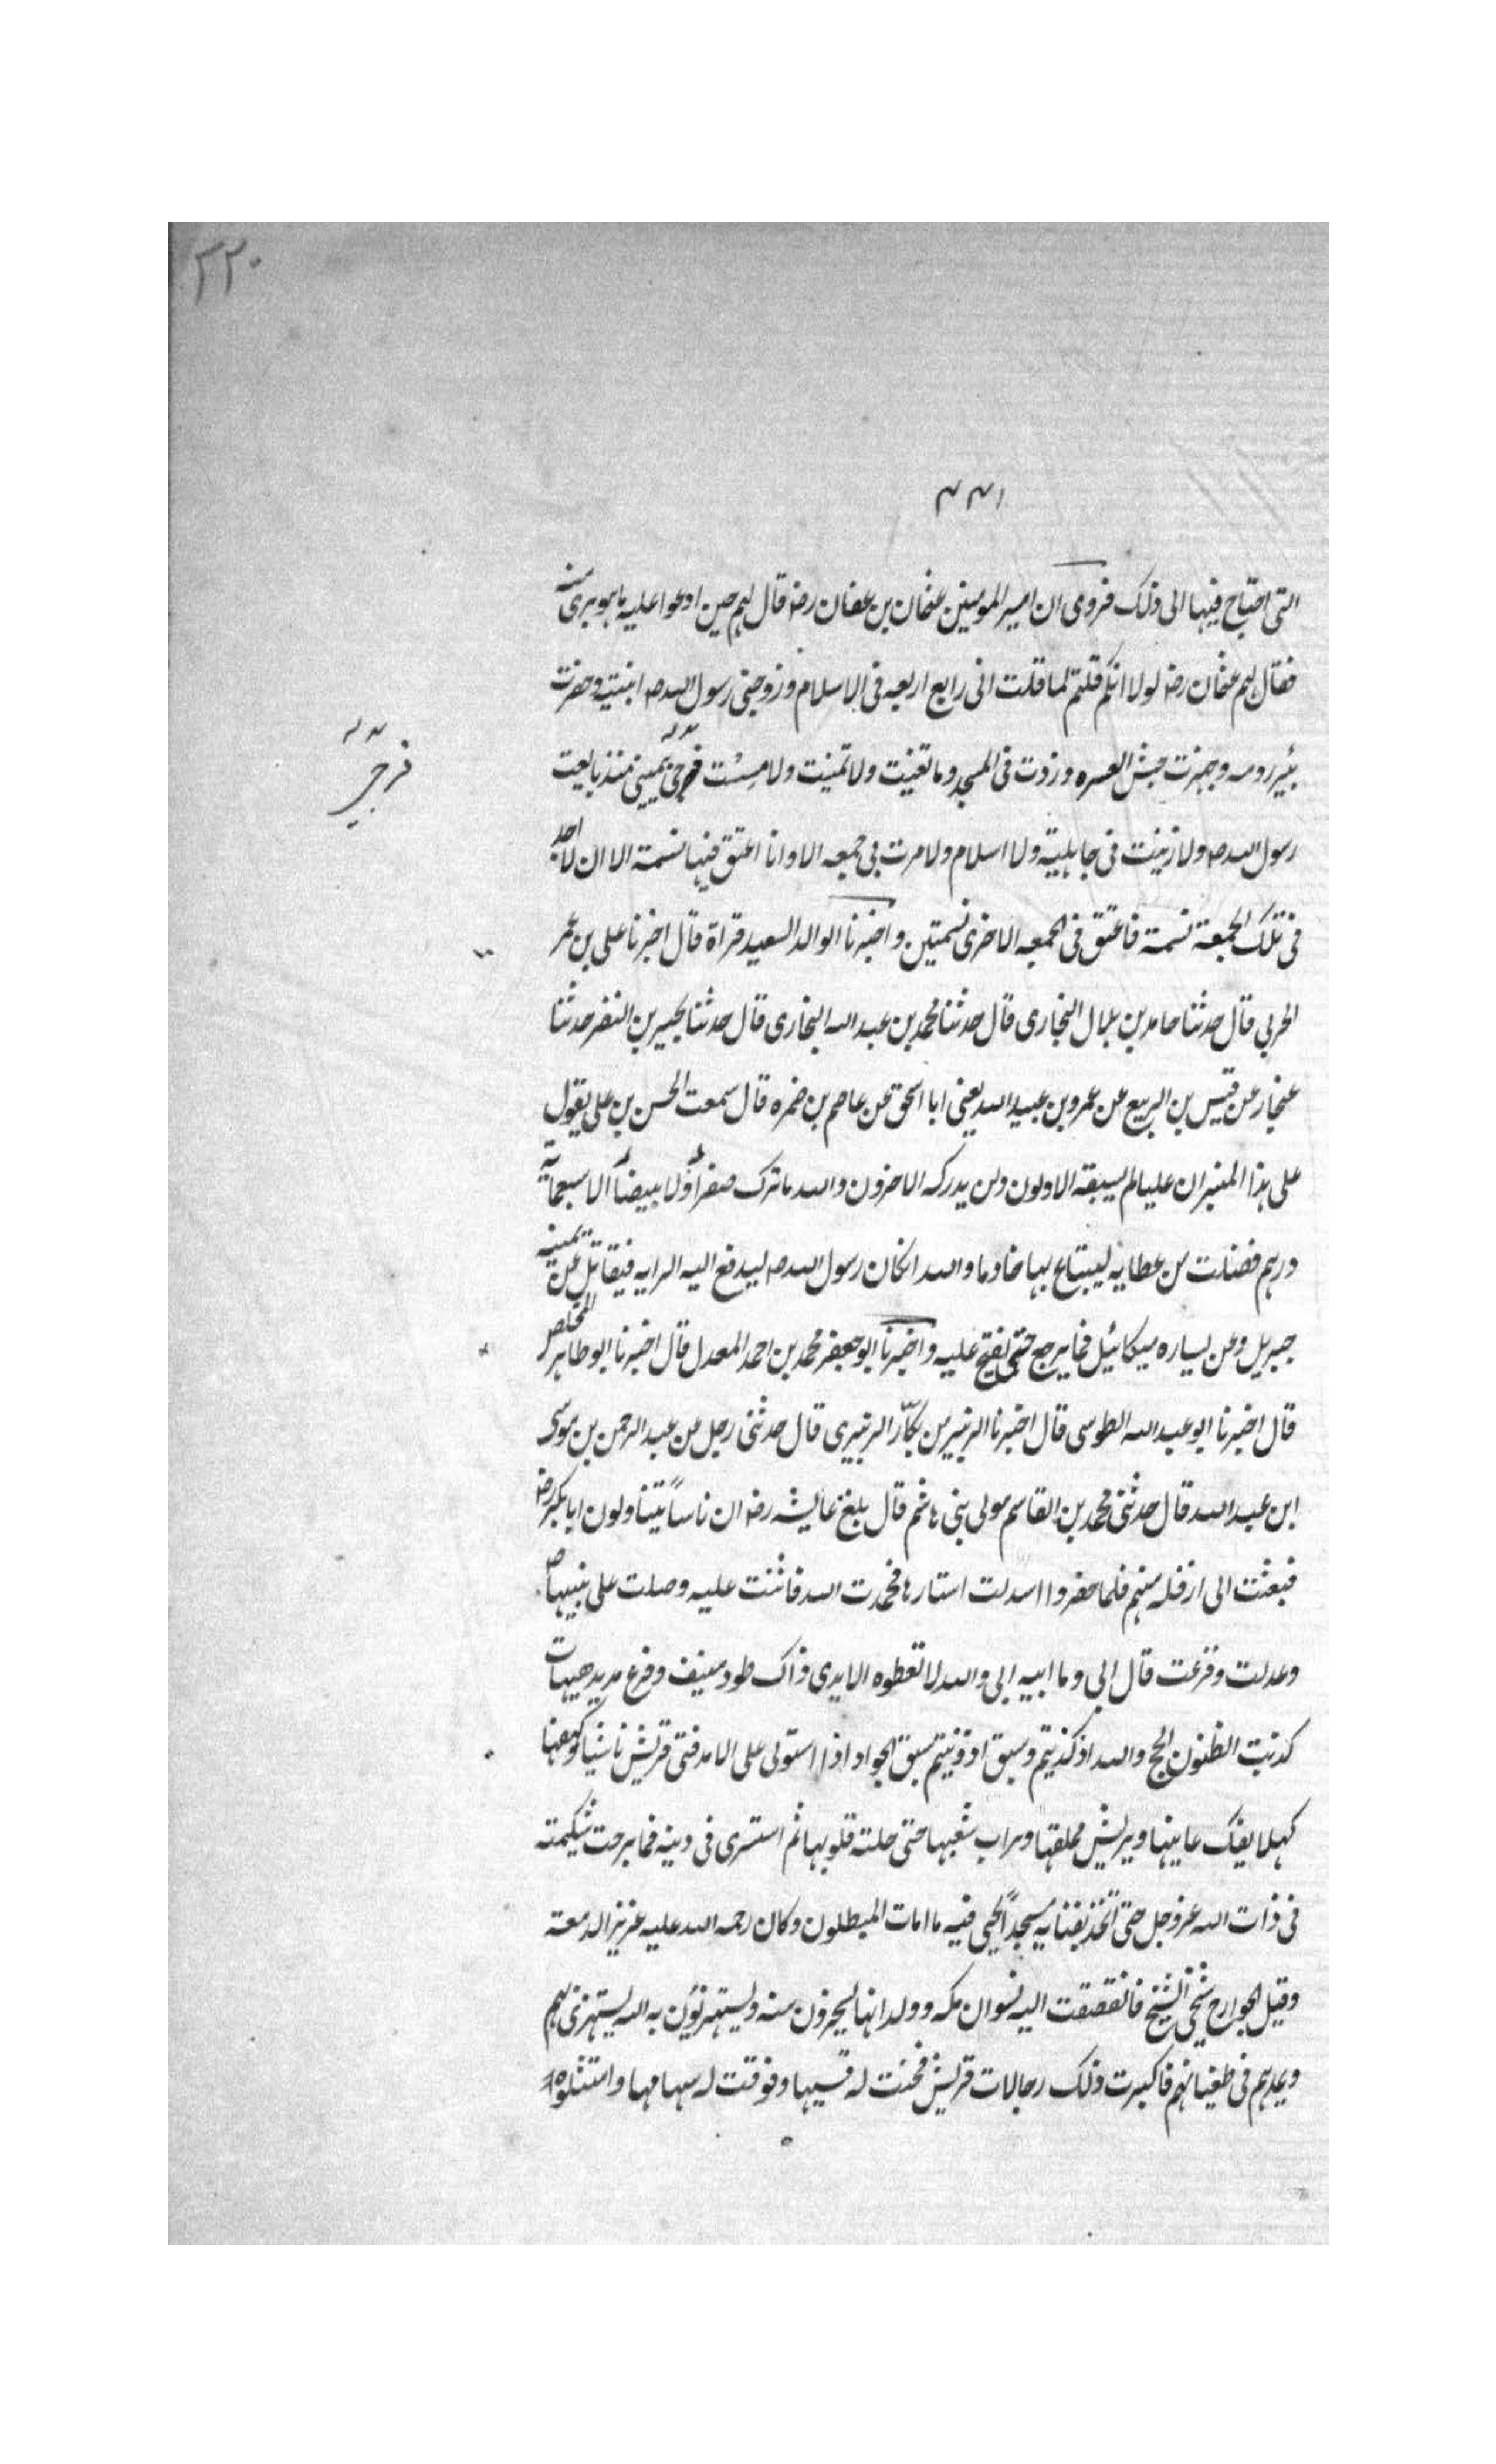 ٢٢٠
٤٣١
التى احتاج فيها الى ذلك فروى ان امير المومنين عثمان بن عفان رضه قال لهم حين ادعوا عليه ما هو برى منه
فقال لهم عثمان رضه لولا انكم قلتم لما قلت انى رابع اربعه فى الاسلام وزوجنى رسول الله صه ابنتيه وحفرت
بئير رومه وجهزت جيش العسره وزدت فى المسجد وما تغنيت ولا تمنيت ولا مسست فرجى بيمينى منذ بايعت
فرجى
رسول الله صه ولا زنيت فى جاهلية ولا اسلام ولا مرت بى جمعه الا وانا اعتق فيها نسمة الا ان لا اجد
فى تلك الجمعة نسمة فاعتق فى الجمعه الاخرى نسمتين واخبرنا الوالد السعيد قراة قال اخبرنا على بن عمر
الحربي قال حدثنا حامد بن بلال البخارى قال حدثنا محمد بن عبد الله البخارى قال حدثنا بحير بن النضر حدثنا
غنجار عن قيس بن الربيع عن عمرو بن عبيد الله يعنى ابا اسحق عن عاصم بن ضمره قال سمعت الحسن بن على يقول
على هذا المنبر ان عليا لم يسبقه الاولون ولن يدركه الاخرون والله ما ترك صفراً ولا بيضاً الا سبعماية
درهم فضلت من عطايه ليبتاع بها خادما والله انكان رسول الله صه ليدفع اليه الرايه فيقاتل عن يمينه
جبريل وعن يساره ميكائيل فما يرجع حتى يفتح عليه واخبرنا ابو جعفر محمد بن احمد المعدل قال اخبرنا ابو طاهر المخلص
قال اخبرنا ابو عبد الله الطوسى قال اخبرنا الزبير بن بكّار الزبيرى قال حدثنى رجل عن عبد الرحمن بن موسى
ابن عبد الله قال حدثنى محمد بن القاسم مولى بنى هاشم قال بلغ عايشه رضه ان ناساً يتناولون ابا بكر رضه
فبعثت الى ازفله منهم فلما حضروا اسدلت استارها فحمدت الله فاثنت عليه وصلت على نبيها ص
وعدلت وقرعت قال ابى وما ابيه ابى والله لا تعطوه الايدى ذاك طود منيف وفرع مديد هيهات
كذبت الظنون الحج والله اذ كذبتم وسبق اذ ونيتم سبق الجواد اذا استولى على الامد فتى قريش ناشيا وكهفها
كهلا يفك عانيها ويريش مملقها ويراب شعبها حتى حلته قلوبها ثم استسرى فى دينه فما برحت شكيمته
فى ذات الله عز وجل حتى اتخذ بفنايه مسجداً يحيى فيه ما امات المبطلون وكان رحمه الله عليه غزير الدمعة
وقيل الجوارح شجى النشيج فانقصفت اليه نسوان مكه وولدانها يسخرون منه ويستهزئون به الله يستهزئ بهم
ويمدهم فى طغيانهم فاكبرت ذلك رجالات قريش فحنت له قسيها وفوقت له سهامها وامتثلوه